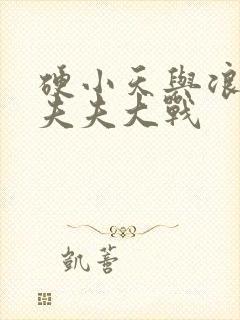 硬小天與浪
夫夫大戰
凱薔